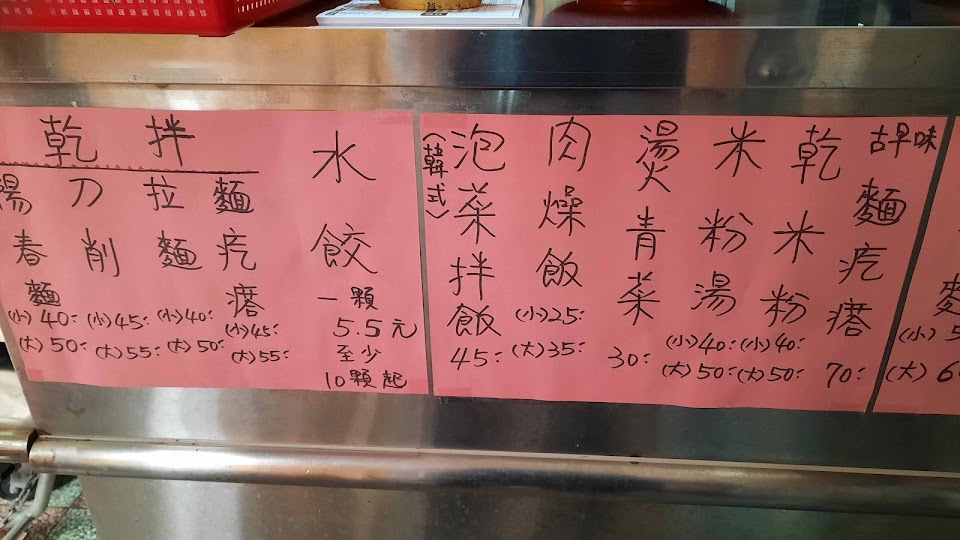 乾拌
陽春麵
(小)40:
(大)50:
刀削
(小)45:
(大)55:
拉麵
(小)40:
(大)50:
麵疙瘩
(小)45:
(大)55:
水餃
一顆
5.5元
至少
10顆起
(韓式)
泡菜拌飯
45:
肉燥飯
(小)25:
(大)35:
燙青菜
30:
米粉湯
(小)40:
(大)50:
乾米粉
(小)40:
(大)50:
古早味
麵疙瘩
70:
(小)
(大)